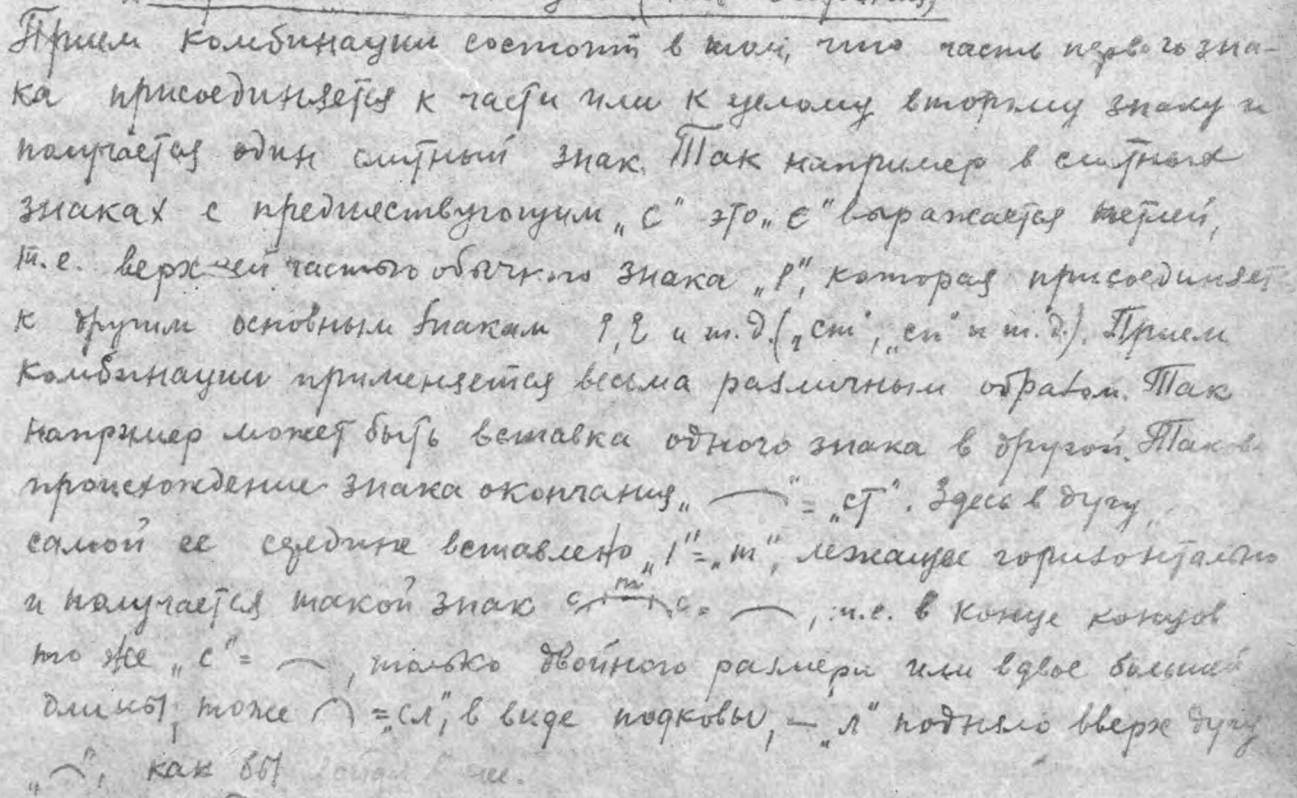 Прием комбинации состоит в том, что часть первого зна-
ка присоединяется к части или к целому второму знаку и
получается один слитный знак. Так например в слитных
знаках с предшествующим „с“ это „с“ выражается петлей,
т.е. верхней частью обычного знака „ “, которая присоединяет
к другим основным знакам и т.д. („ст“, „сп“ и т.д.). Прием
комбинации применяется весьма различным образом. Так
например может быть вставка одного знака в другой. Таково
происхождение знака окончания „⌒“ = „ст“. Здесь в дугу
самой ее середине вставлено „ı“ = „т“, лежащее горизонтально
и получается такой знак с т с = ⌒, т.е. в конце концов
то же „с“ = ⌒, только двойного размера или вдвое большей
длины; тоже ⌒ = „сл“, в виде подковы, — „л“ подняло вверх дугу
„⌒“, как бы в нее.